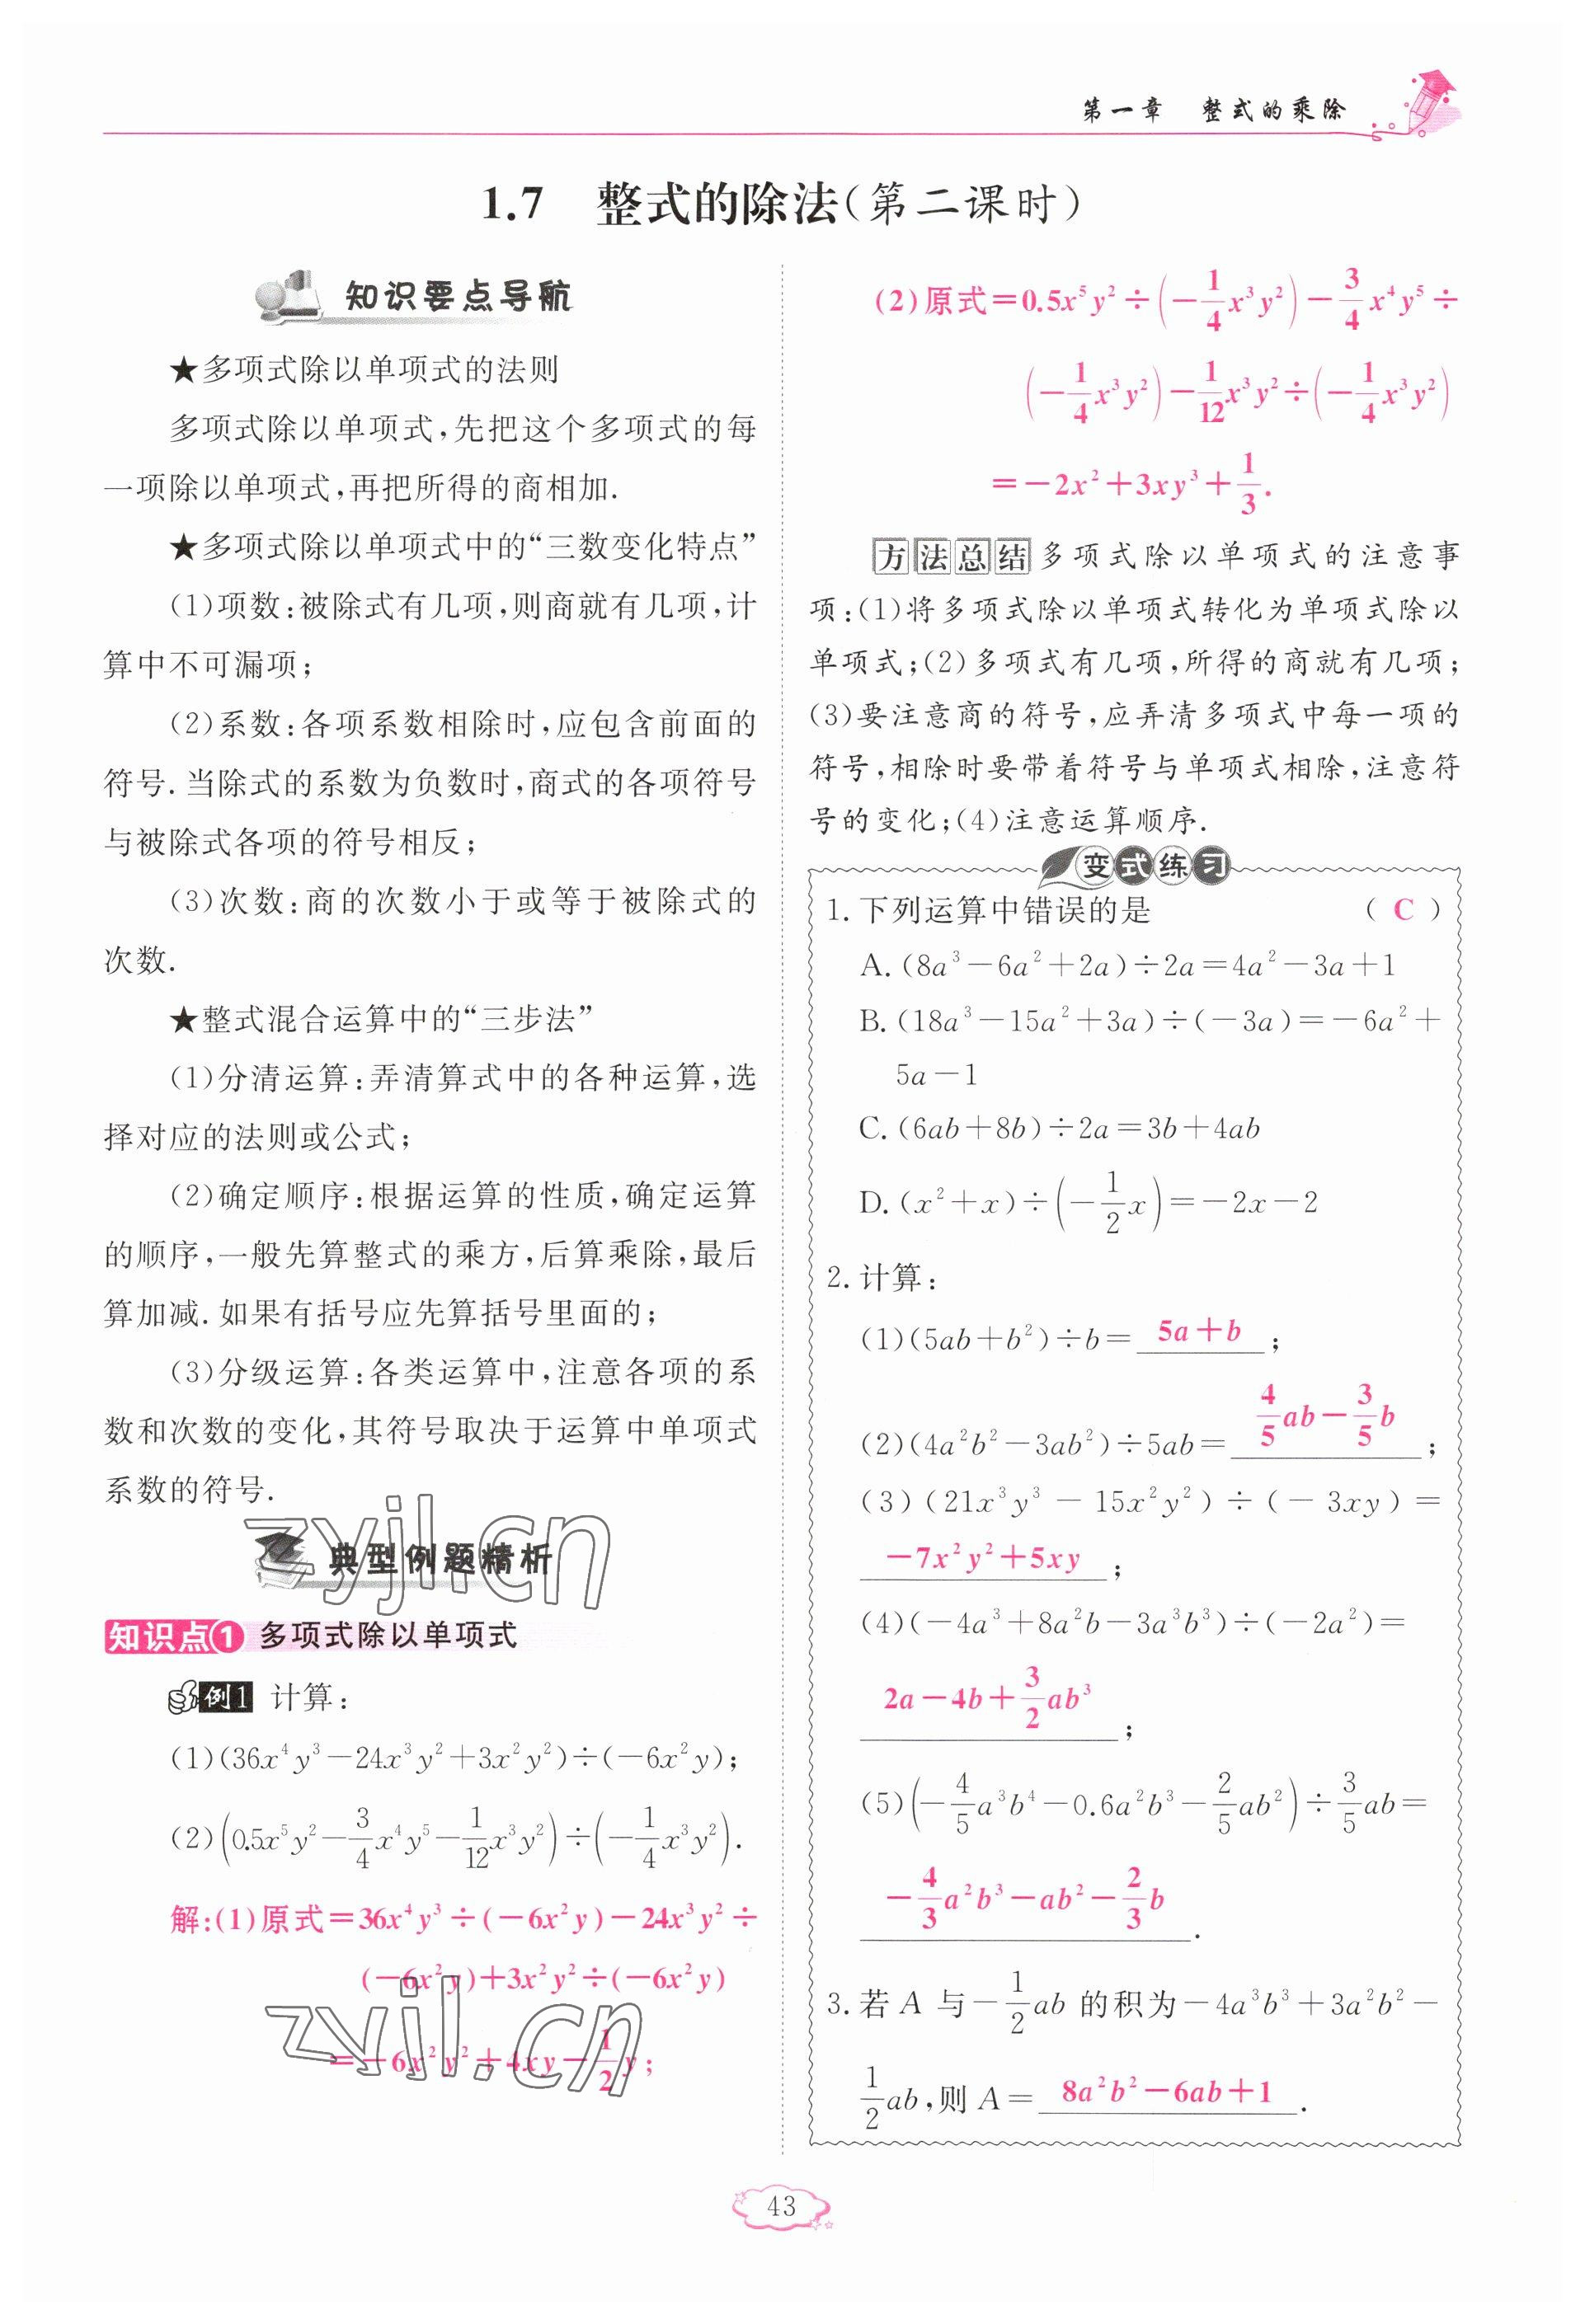 第一章 整式的乘除
1.7 整式的除法(第二课时)
知识要点导航
★多项式除以单项式的法则
多项式除以单项式,先把这个多项式的每
一项除以单项式,再把所得的商相加.
★多项式除以单项式中的“三数变化特点”
(1)项数:被除式有几项,则商就有几项,计
算中不可漏项;
(2)系数:各项系数相除时,应包含前面的
符号.当除式的系数为负数时,商式的各项符号
与被除式各项的符号相反;
(3)次数:商的次数小于或等于被除式的
次数.
★整式混合运算中的“三步法”
(1)分清运算:弄清算式中的各种运算,选
择对应的法则或公式;
(2)确定顺序:根据运算的性质,确定运算
的顺序,一般先算整式的乘方,后算乘除,最后
算加减.如果有括号应先算括号里面的;
(3)分级运算:各类运算中,注意各项的系
数和次数的变化,其符号取决于运算中单项式
系数的符号.
zyjl.cn
典型例题精析
知识点1 多项式除以单项式
例1 计算:
(1)(36x⁴y³－24x³y²＋3x²y²)÷(－6x²y);
(2)(0.5x⁵y²－3/4x⁴y⁵－1/12x³y²)÷(－1/4x³y²).
解:(1)原式＝36x⁴y³÷(－6x²y)－24x³y²÷
(－6x²y)＋3x²y²÷(－6x²y)
＝－6x²y²＋4xy－1/2y;
zyjl.cn
(2)原式＝0.5x⁵y²÷(－1/4x³y²)－3/4x⁴y⁵÷
(－1/4x³y²)－1/12x³y²÷(－1/4x³y²)
＝－2x²＋3xy³＋1/3.
方法总结 多项式除以单项式的注意事
项:(1)将多项式除以单项式转化为单项式除以
单项式;(2)多项式有几项,所得的商就有几项;
(3)要注意商的符号,应弄清多项式中每一项的
符号,相除时要带着符号与单项式相除,注意符
号的变化;(4)注意运算顺序.
变式练习
1.下列运算中错误的是 ( C )
A.(8a³－6a²＋2a)÷2a＝4a²－3a＋1
B.(18a³－15a²＋3a)÷(－3a)＝－6a²＋
5a－1
C.(6ab＋8b)÷2a＝3b＋4ab
D.(x²＋x)÷(－1/2x)＝－2x－2
2.计算:
(1)(5ab＋b²)÷b＝ 5a＋b ;
(2)(4a²b²－3ab²)÷5ab＝ 4/5ab－3/5b ;
(3)(21x³y³－15x²y²)÷(－3xy)＝
－7x²y²＋5xy ;
(4)(－4a³＋8a²b－3a³b³)÷(－2a²)＝
2a－4b＋3/2ab³ ;
(5)(－4/5a³b⁴－0.6a²b³－2/5ab²)÷3/5ab＝
－4/3a²b³－ab²－2/3b .
3.若 A 与－1/2ab 的积为－4a³b³＋3a²b²－
1/2ab,则 A＝ 8a²b²－6ab＋1 .
43